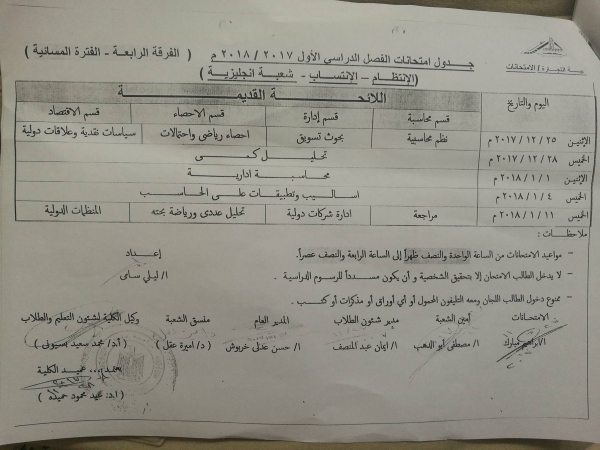 جدول امتحانات الفصل الدراسي الأول ٢٠١٧ / ٢٠١٨ م ( الفرقة الرابعة - الفترة المسائية )
(الإنتظام - الإنتساب - شعبة انجليزية )
التجارة / الامتحانات
اللائحة القديمة
اليوم والتاريخ قسم محاسبة قسم إدارة قسم الاحصاء قسم الاقتصاد
الإثنين ٢٥ / ١٢ / ٢٠١٧ م نظم محاسبية بحوث تسويق احصاء رياضى واحتمالات سياسات نقدية وعلاقات دولية
الخميس ٢٨ / ١٢ / ٢٠١٧ م تحليل كمى
الإثنين ١ / ١ / ٢٠١٨ م محاسبة ادارية
الخميس ٤ / ١ / ٢٠١٨ م اساليب وتطبيقات على الحاسب
الخميس ١١ / ١ / ٢٠١٨ م مراجعة ادارة شركات دولية تحليل عددى ورياضة بحته المنظمات الدولية
ملاحظات :
– مواعيد الامتحانات من الساعة الواحدة والنصف ظهراً إلى الساعة الرابعة والنصف عصراً.
– لا يدخل الطالب الامتحان إلا بتحقيق الشخصية و أن يكون مسدداً للرسوم الدراسية .
– ممنوع دخول الطالب اللجان ومعه التليفون المحمول أو أي أوراق أو مذكرات أو كتب .
إعداد
ا/ ليلي سامى
الامتحانات أمين الشعبة مدير شئون الطلاب المدير العام منسق الشعبة وكيل الكلية لشئون التعليم والطلاب
ا/ مصطفى أبو الدهب ا/ ايمان عبد المنصف ا/ حسن عدلى خربوش ( د/ اميرة عقل ) ( أ.د/ محمد سعيد بسيونى )
يعتمد ... عميد الكلية